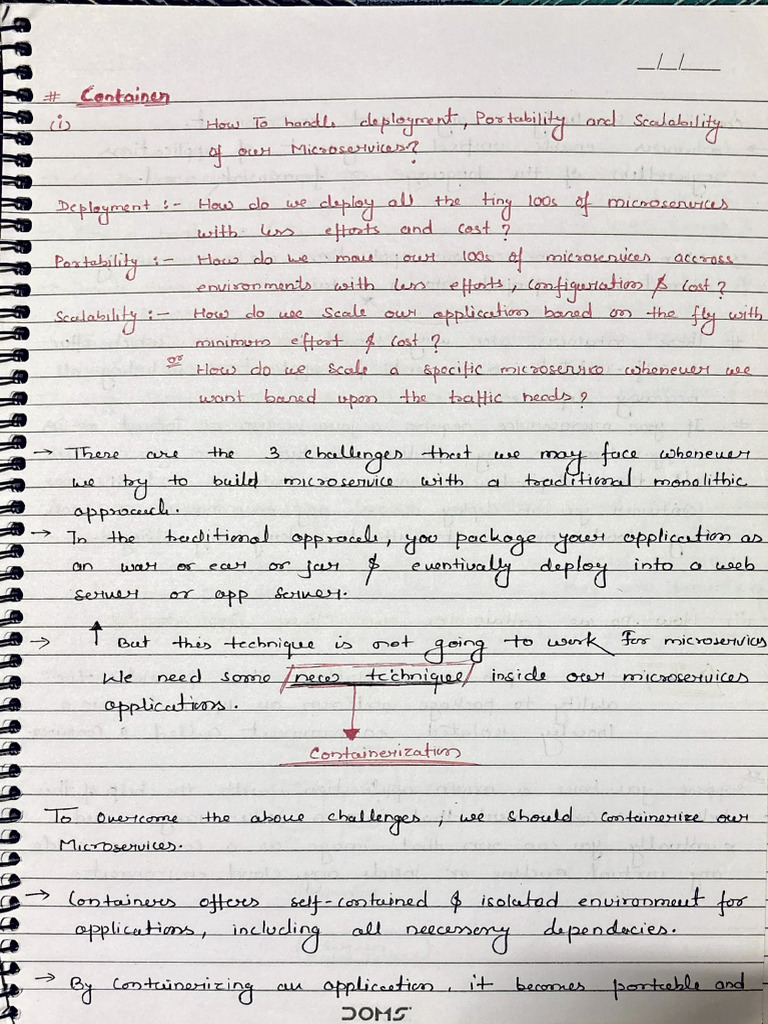 _/_/___
# Container
(i) How To handle deployment, Portability and Scalability
of our Microservices?
Deployment :- How do we deploy all the tiny 100s of microservices
with less efforts and cost?
Portability :- How do we move our 100s of microservices accross
environments with less efforts, configuration & cost?
Scalability :- How do we scale our application based on the fly with
minimum effort & cost?
or How do we scale a specific microservice whenever we
want based upon the traffic needs?
→ There are the 3 challenges that we may face whenever
we try to build microservice with a traditional monolithic
approach.
→ In the traditional approach, you package your application as
an war or ear or jar & eventivally deploy into a web
server or app server.
→ ↑ But this technique is not going to work for microservices
We need some /new technique/ inside our microservices
applications.
Containerization
To overcome the above challenges, we should containerize our
Microservices.
→ Containers offers self-contained & isolated environment for
applications, including all neccessory dependacies.
→ By containerizing an application, it becomes portable and
DOMS